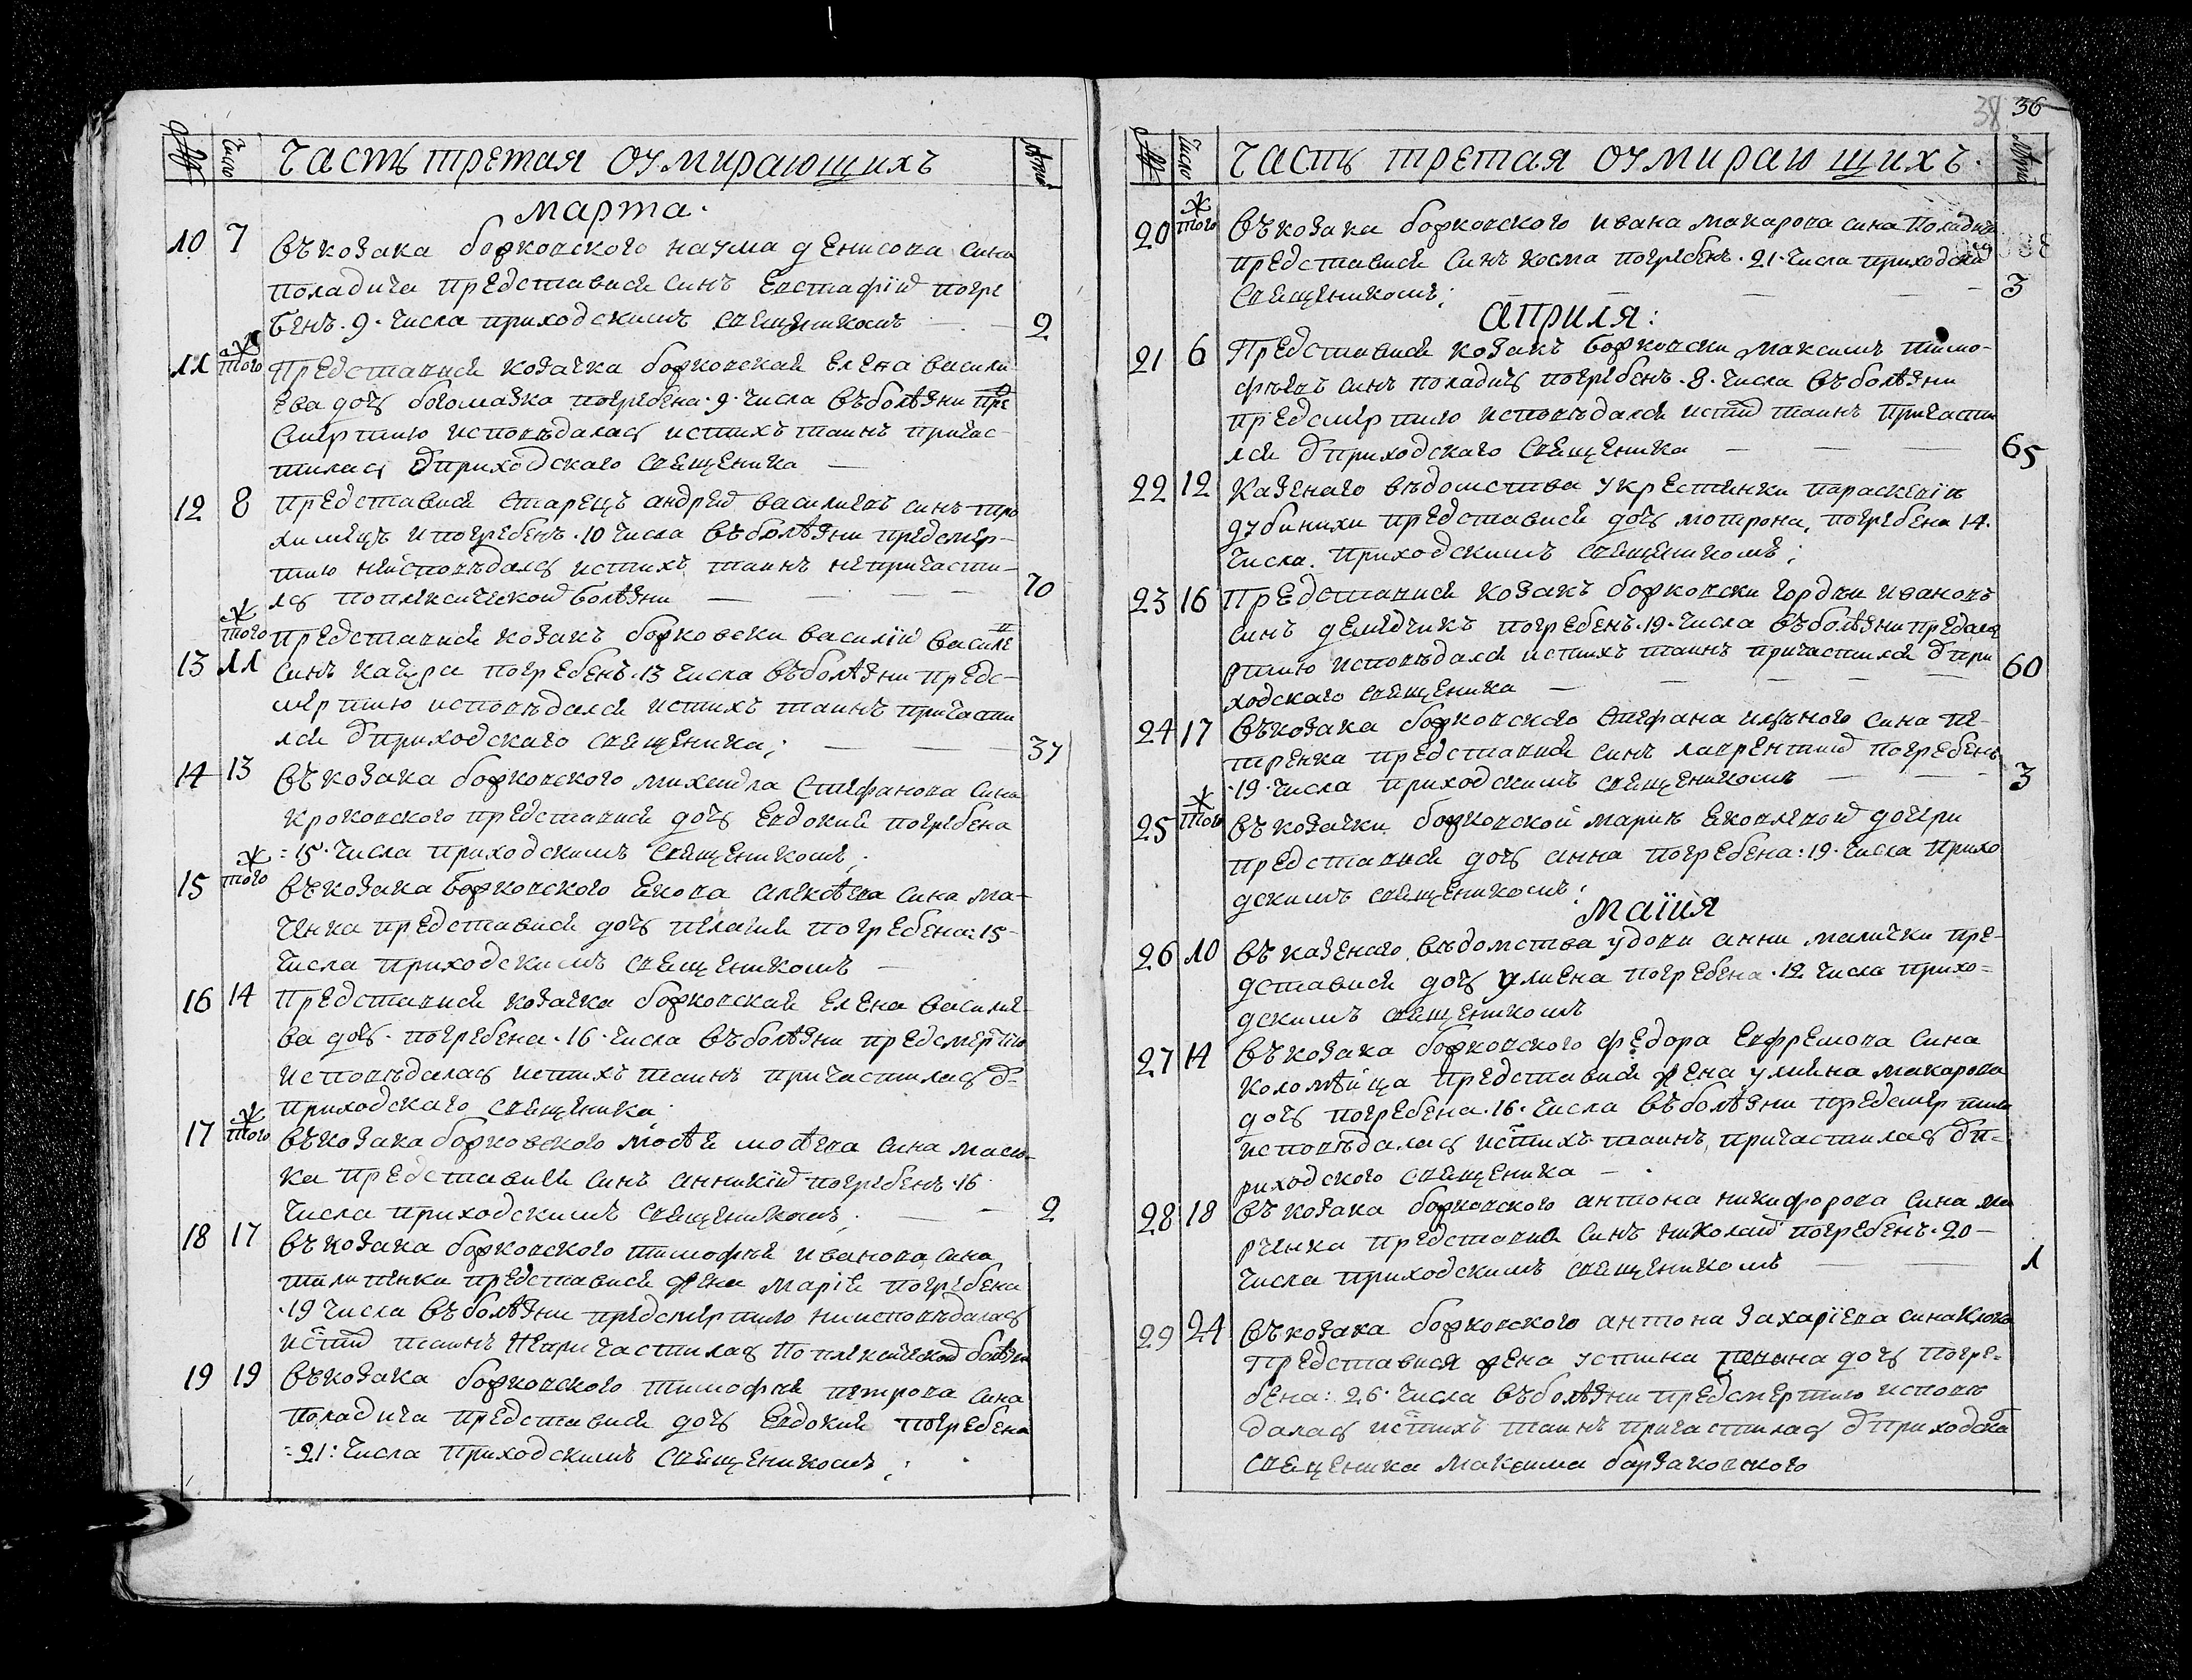 № Число Часть третая оумирающихъ Лѣта
марта.
10 7 въ козака борковского наума денисова сина
поладича представися синъ Евстафій погре
бенъ. 9. числа приходскимъ священикомъ 2
11 тогож Представися козачка борковская Елена васили
ева дочь богомазка погребена. 9. числа въ болѣзни пре
смертию исповѣдалась истихъ таинъ причас-
тилась ѿ приходскаго священика
12 8 представися старецъ андрей василиевъ синъ тро
химецъ и погребенъ. 10 числа въ болѣзни предсмер-
тию неисповѣдалсь истихъ таинъ непричасти-
лсь поплексической болѣзни 70
тогож представися козакъ борковски василій василе
13 11 синъ качура погребенъ. 13 числа въ болѣзни предс-
мертию исповѣдался истихъ таинъ причасти
лся ѿ приходскаго священика; 37
14 13 въ козака борковского михаила Стефанова сина
кроковского представися дочь Евдокия погребена
= 15. числа приходскимъ священикомъ.
15 тогож въ козака борковского Якова алексѣева сина ма-
ченка представися дочь пелагия погребена: 15-
числа приходскимъ священикомъ
16 14 Представися козачка борковская Елена василие
ва дочь. погребена. 16. числа въ болѣзни предсмертию
исповѣдалась истихъ таинъ причастилась ѿ-
приходскаго священика.
17 тогож въ козака борковского мосѣя мосѣева сина масю-
ка представися синъ анникій погребенъ. 16
числа приходскимъ священикомъ; 2
18 17 въ козака борковского тимофѣя иванова сина
пилипенка представися жена марія погребена
. 19 числа въ болѣзни предсмертию ниисповѣдалась
истих таинъ непричастилась поплексической болѣзни
19 19 въ козака борковского тимофѣя петрова сина
поладича представися дочь Евдокия погребена
= 21: числа приходскимъ священикомъ;
38 36
№ Число Часть третая оумирающихъ. Лѣта
20 тогож въ козака борковского ивана макарова сина поладича
представися синъ косма погребенъ. 21. числа приходским
священикомъ; 3
априля:
21 6 Представися козакъ борковски максимъ тимо-
фѣевъ синъ поладичь погребенъ. 8. числа въ болѣзни
предсмертию исповѣдался истих таинъ причасти
лся ѿ приходскаго священика 65
22 12 казенаго вѣдомства у крестянки параскевіи
дубинихи представися дочь мотрона, погребена 14.
числа. приходскимъ священикомъ;
23 16 Представися козакъ борковски гордѣи ивановъ
синъ демедчикъ погребенъ. 19. числа въ болѣзни предсме
ртию исповѣдался истихъ таинъ причастился ѿ при
ходскаго священика 60
24 17 въ козака борковского стефана сина пе-
тренка представися синъ лаврентій погребенъ
. 19. числа приходскимъ священикомъ 3
25 тогож въ козачки борковской марии яковлевой дочери
представися дочь анна погребена: 19. числа прихо
дскимъ священикомъ;
маія
26 10 въ казенаго вѣдомства удови анни малички пре-
дставися дочь улиена погребена. 12 числа прихо=
дскимъ священикомъ
27 14 въ козака борковского федора Евфремова сина
коломѣйца представися жена улияна макарова
дочь погребена. 16. числа въ болѣзни предсмертию
исповѣдалась истихъ таинъ, причастилась ѿ п=
риходского священика
28 18 въ козака борковского антона никифорова сина ма
рченка представися синъ николай погребенъ. 20-
числа приходскимъ священикомъ 1
29 24 въ козака борковского антона захаріева сина
представися жена устина дочь погре=
бена: 26. числа въ болѣзни предсмертию исповѣ
далась истихъ таинъ причастилась ѿ приходска
священика максима барзаковского